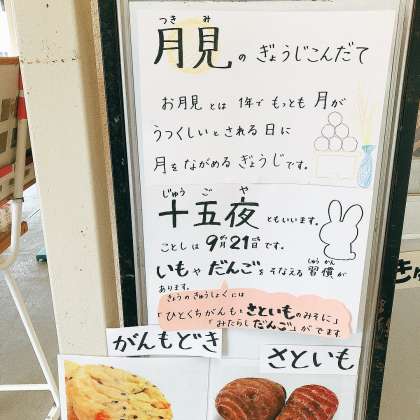 つき み
月見のぎょうじこんだて
お月見とは1年でもっとも月が
うつくしいとされる日に
月をながめるぎょうじです。
じゅう ご や
十五夜ともいいます。
ことしは9月21日です。
しゅうかん
いもやだんごをそなえる習慣が
あります。
きょうのきゅうしょくには
「ひとくちがんも、さといものみそに」
「みたらしだんご」がでます
がんもどき
さといも